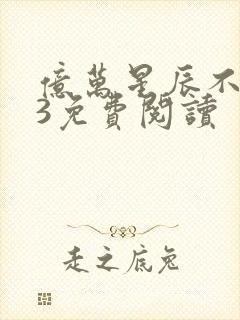 億萬星辰不
3免費閱讀
走之底兔